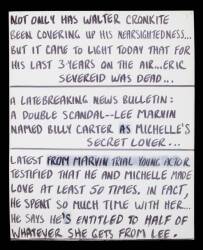 NOT ONLY HAS WALTER CRONKITE
BEEN COVERING UP HIS NEARSIGHTEDNESS...
BUT IT CAME TO LIGHT TODAY THAT FOR
HIS LAST 3 YEARS ON THE AIR...ERIC
SEVEREID WAS DEAD...
A LATEBREAKING NEWS BULLETIN:
A DOUBLE SCANDAL--LEE MARVIN
NAMED BILLY CARTER AS MICHELLE'S
SECRET LOVER...
LATEST FROM MARVIN TRIAL YOUNG ACTOR
TESTIFIED THAT HE AND MICHELLE MADE
LOVE AT LEAST 50 TIMES. IN FACT,
HE SPENT SO MUCH TIME WITH HER...
HE SAYS HE'S ENTITLED TO HALF OF
WHATEVER SHE GETS FROM LEE.